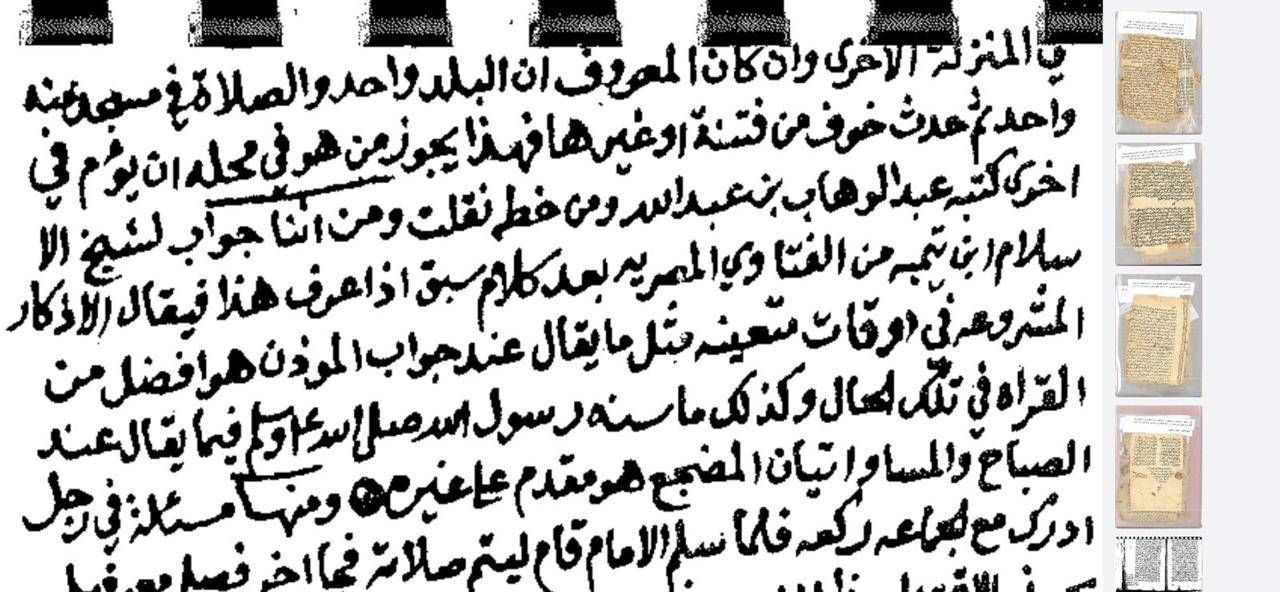 في المنزلة الاخرى وان كان المعروف ان البلد واحد والصلاة في مسجد عينه
واحد ثم حدث خوف من فتنة او غيرها فهذا يجوز من هو في محله ان يؤم في
اخرى كتبه عبد الوهاب بن عبد الله ومن خطه نقلت ومن اثنا جواب لشيخ الا
سلام ابن تيميه من الفتاوي المصريه بعد كلام سبق اذا عرف هذا فيقال الاذكار
المشروعه في اوقات متعينه مثل ما يقال عند جواب الموذن هو افضل من
القراه في تلك الحال وكذلك ما سنه رسول الله صلى الله عليه وسلم فيما يقال عند
الصباح والمسا واتيان المضجع هو مقدم على غيره ومنها مسئلة في رجل
ادرك مع الجماعه ركعه فلما سلم الامام قام ليتم صلاته فجا اخر فصلى معه فهل